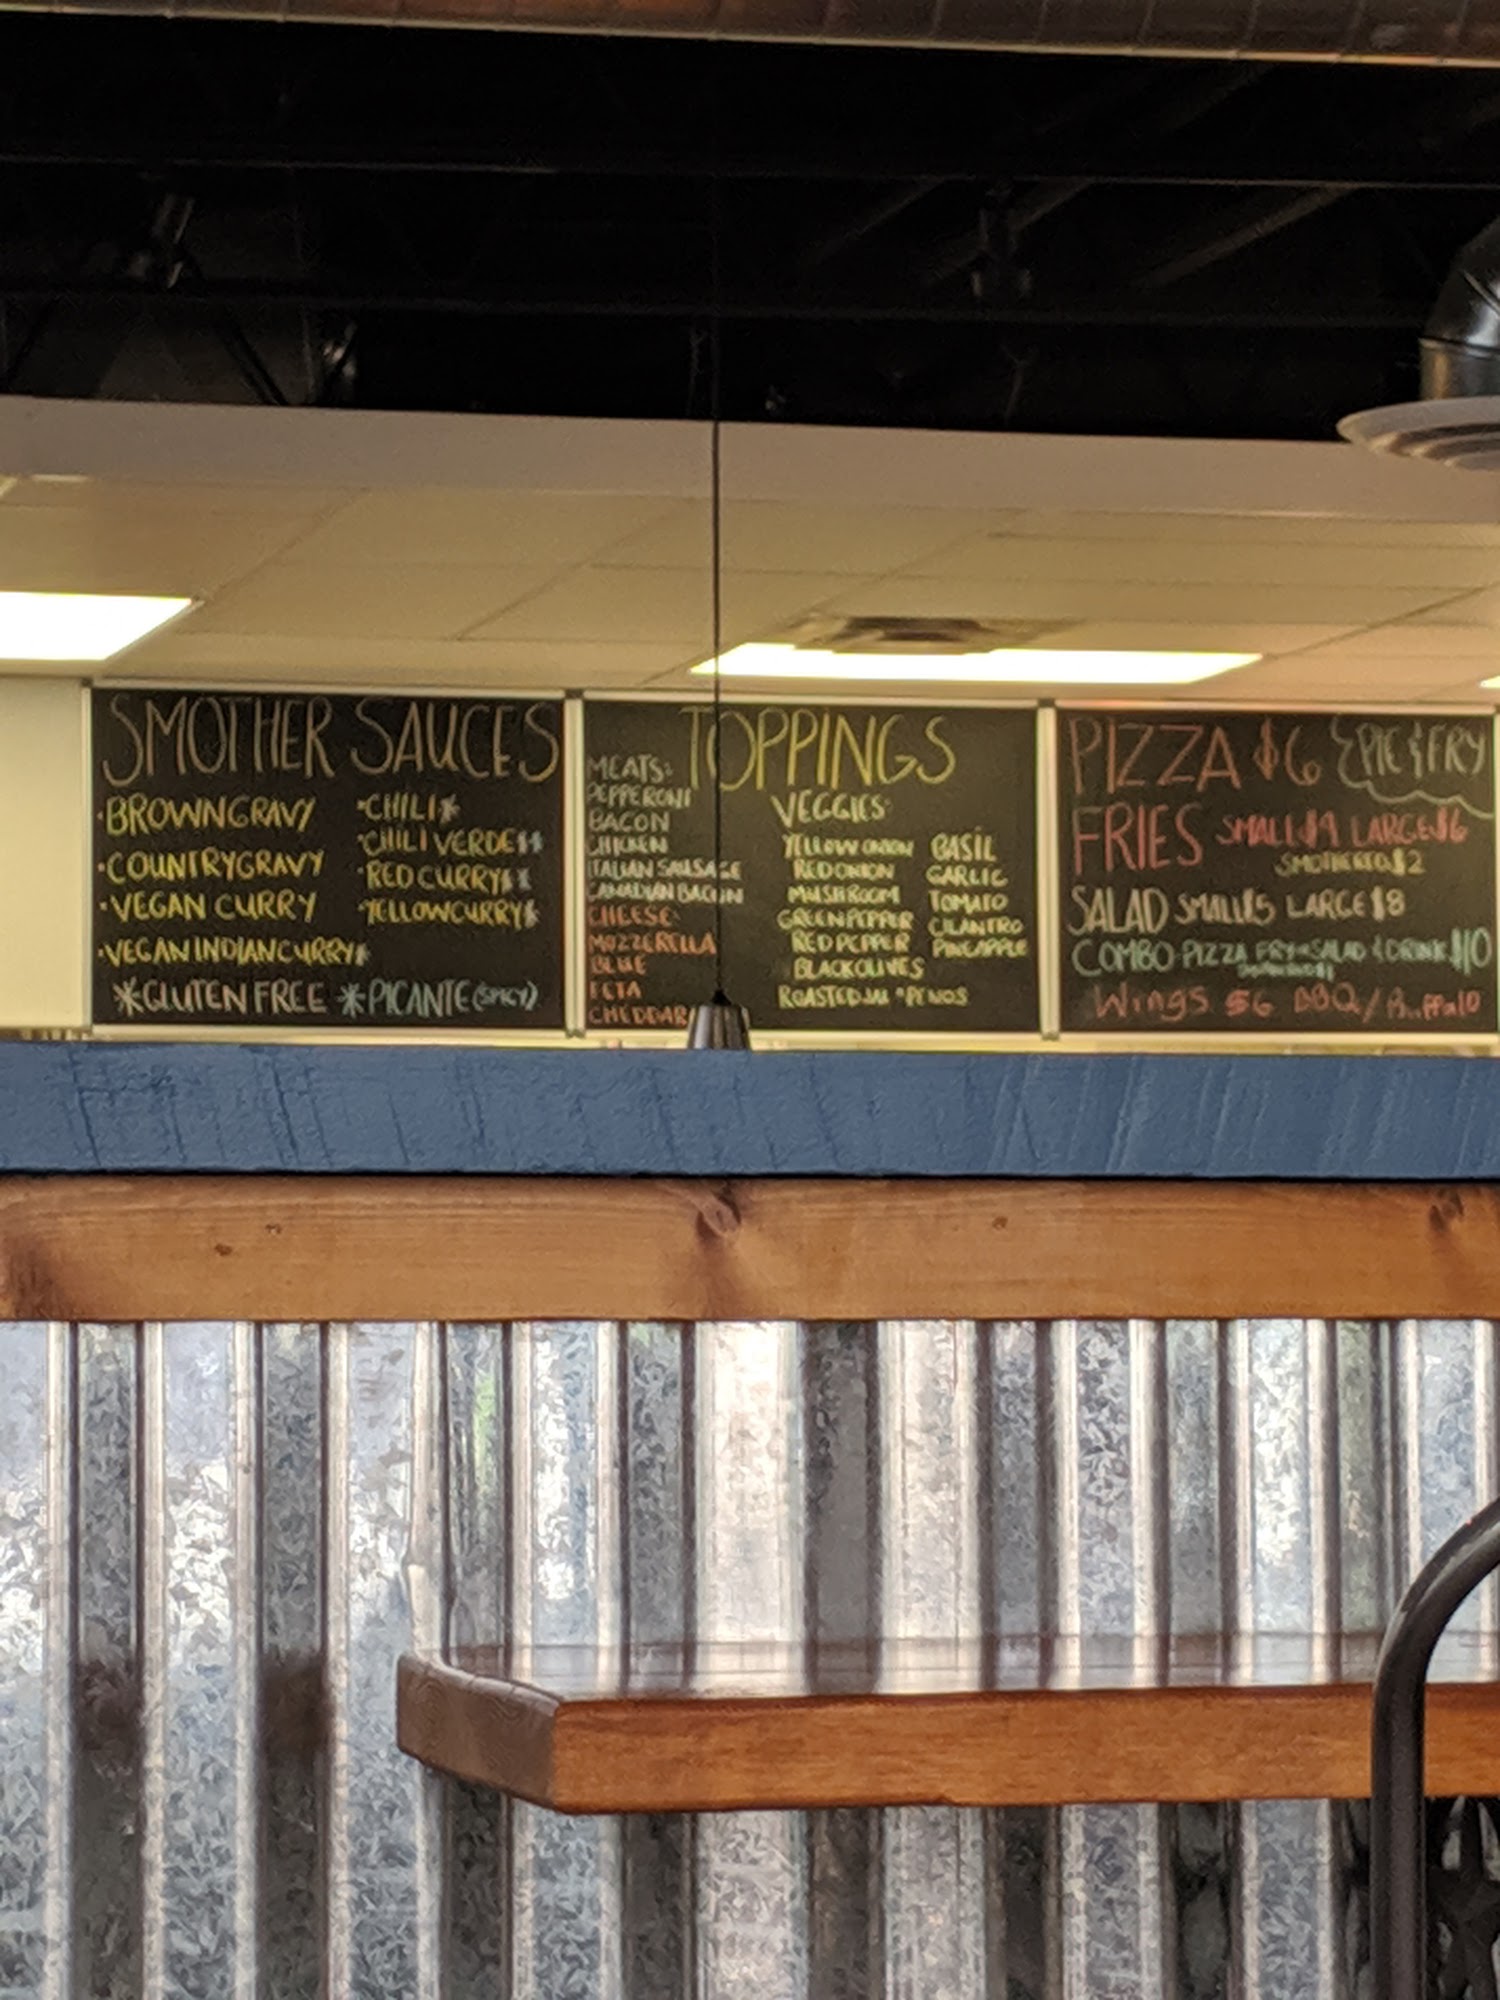 SMOTHER SAUCES
•BROWN GRAVY
•COUNTRY GRAVY
•VEGAN CURRY
•VEGAN INDIAN CURRY*
•CHILI*
•CHILI VERDE**
•RED CURRY**
•YELLOW CURRY*
*GLUTEN FREE *PICANTE (SPICY)
TOPPINGS
MEATS:
PEPPERONI
BACON
CHICKEN
ITALIAN SAUSAGE
CANADIAN BACON
CHEESE:
MOZZERELLA
BLUE
FETA
CHEDDAR
VEGGIES:
YELLOW ONION
RED ONION
MUSHROOM
GREEN PEPPER
RED PEPPER
BLACK OLIVES
ROASTED JALAPENOS
BASIL
GARLIC
TOMATO
CILANTRO
PINEAPPLE
PIZZA $6
PIE & FRY
FRIES SMALL LARGE $6
SMOTHERED $2
SALAD SMALL $5 LARGE $8
COMBO-PIZZA, FRY or SALAD & DRINK $10
Wings $6 BBQ/Buffalo